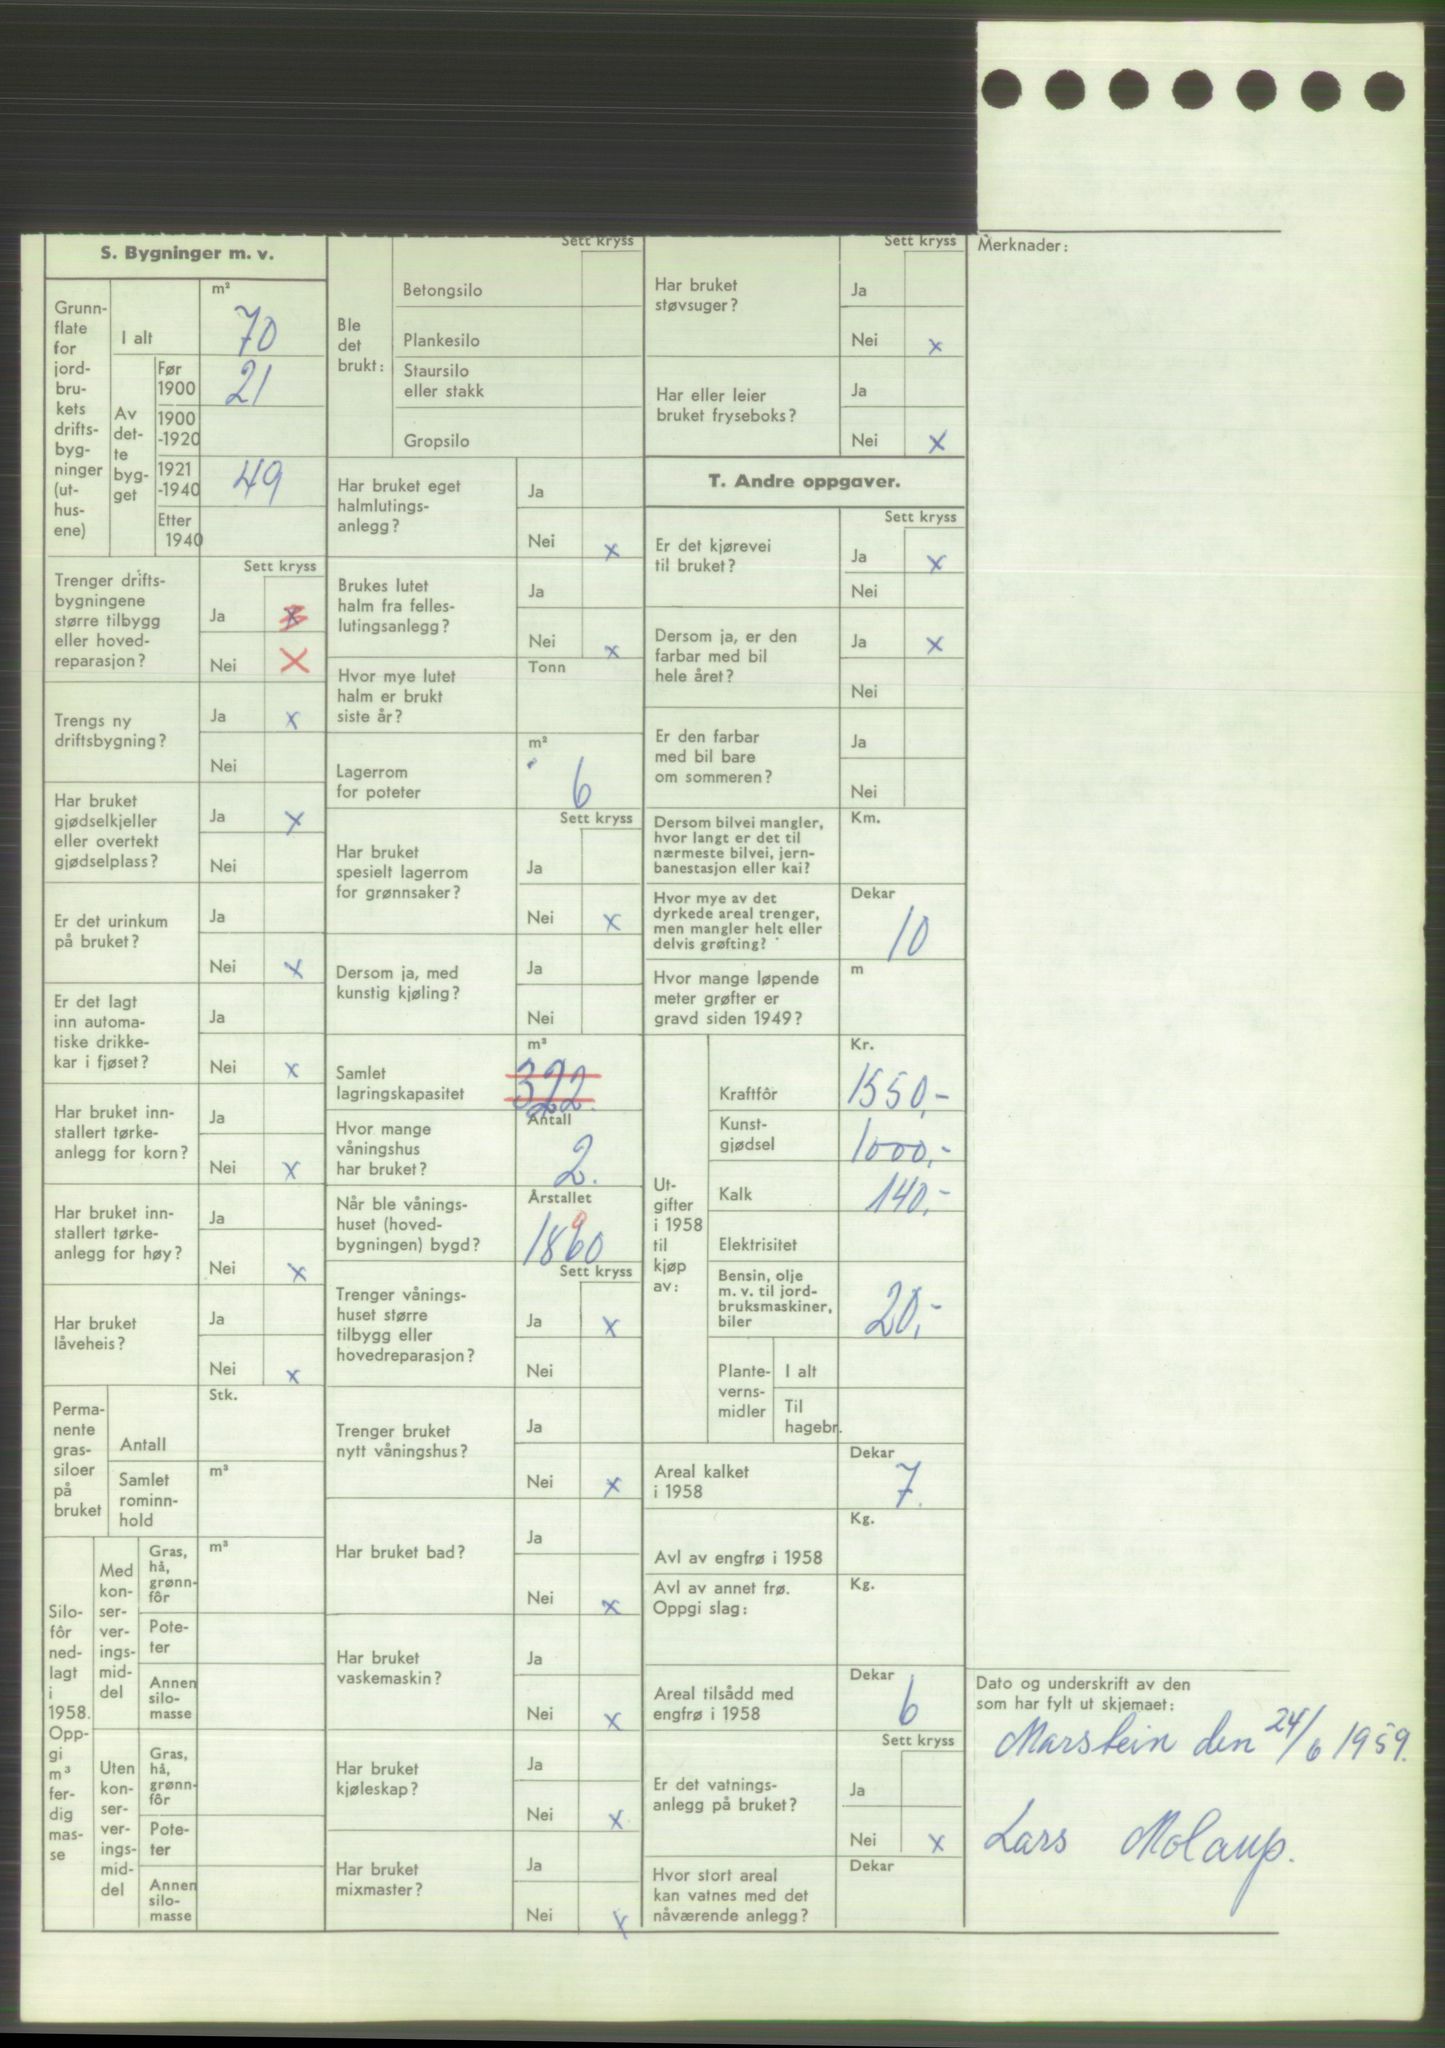 S. Bygninger m. v.
Grunn-
flate
for
jord-
bru-
kets
drifts-
byg-
ninger
(ut-
hus-
ene)
m²
I alt
70
Av
det-
te
byg-
get
Før
1900
21
1900
-1920
1921
-1940
49
Etter
1940
Sett kryss
Trenger drifts-
bygningene
større tilbygg
eller hoved-
reparasjon?
Ja
x
Nei
x
Trengs ny
driftsbygning?
Ja
x
Nei
Har bruket
gjødselkjeller
eller overtekt
gjødselplass?
Ja
x
Nei
Er det urinkum
på bruket?
Ja
Nei
x
Er det lagt
inn automa-
tiske drikke-
kar i fjøset?
Ja
Nei
x
Har bruket inn-
stallert tørke-
anlegg for korn?
Ja
Nei
x
Har bruket inn-
stallert tørke-
anlegg for høy?
Ja
Nei
x
Har bruket
låveheis?
Ja
Nei
x
Perma-
nente
gras-
siloer
på
bruket
Stk.
Antall
m³
Samlet
rominn-
hold
Silo-
fôr
ned-
lagt
i
1958.
Opp-
gi
m³
fer-
dig
mas-
se
Med
kon-
ser-
ver-
ings-
mid-
del
m³
Gras,
hå,
grønn-
fôr
Pote-
ter
Annen
silo-
masse
Uten
kon-
ser-
ver-
ings-
mid-
del
Gras,
hå,
grønn-
fôr
Pote-
ter
Annen
silo-
masse
Ble
det
brukt:
Sett kryss
Betongsilo
Plankesilo
Staursilo
eller stakk
Gropsilo
Har bruket eget
halmlutings-
anlegg?
Ja
Nei
x
Brukes lutet
halm fra felles-
lutingsanlegg?
Ja
Nei
x
Hvor mye lutet
halm er brukt
siste år?
Tonn
Lagerrom
for poteter
m²
6
Sett kryss
Har bruket
spesielt lagerrom
for grønnsaker?
Ja
Nei
x
Dersom ja, med
kunstig kjøling?
Ja
Nei
Samlet
lagringskapasitet
m³
322.
Hvor mange
våningshus
har bruket?
Antall
2.
Når ble vånings-
huset (hoved-
bygningen) bygd?
Årstallet
1860
Sett kryss
Trenger vånings-
huset større
tilbygg eller
hovedreparasjon?
Ja
x
Nei
Trenger bruket
nytt våningshus?
Ja
Nei
x
Har bruket bad?
Ja
Nei
x
Har bruket
vaskemaskin?
Ja
Nei
x
Har bruket
kjøleskap?
Ja
Nei
x
Har bruket
mixmaster?
Ja
Nei
x
Sett kryss
Har bruket
støvsuger?
Ja
Nei
x
Har eller leier
bruket fryseboks?
Ja
Nei
x
T. Andre oppgaver.
Sett kryss
Er det kjørevei
til bruket?
Ja
x
Nei
Dersom ja, er den
farbar med bil
hele året?
Ja
x
Nei
Er den farbar
med bil bare
om sommeren?
Ja
Nei
Dersom bilvei mangler,
hvor langt er det til
nærmeste bilvei, jern-
banestasjon eller kai?
Km.
Hvor mye av det
dyrkede areal trenger,
men mangler helt eller
delvis grøfting?
Dekar
10
Hvor mange løpende
meter grøfter er
gravd siden 1949?
m
Ut-
gifter
i 1958
til
kjøp
av:
Kr.
Kraftfôr
1550,-
Kunst-
gjødsel
1000,-
Kalk
140,-
Elektrisitet
Bensin, olje
m. v. til jord-
bruksmaskiner,
biler
20,-
Plante-
verns-
midler
I alt
Til
hagebr.
Areal kalket
i 1958
Dekar
7.
Avl av engfrø i 1958
Kg.
Avl av annet frø.
Oppgi slag:
Kg.
Areal tilsådd med
engfrø i 1958
Dekar
6
Sett kryss
Er det vatnings-
anlegg på bruket?
Ja
Nei
x
Hvor stort areal
kan vatnes med det
nåværende anlegg?
Dekar
Merknader:
Dato og underskrift av den
som har fylt ut skjemaet:
Marstein den 24/6 1959.
Lars Molaup.